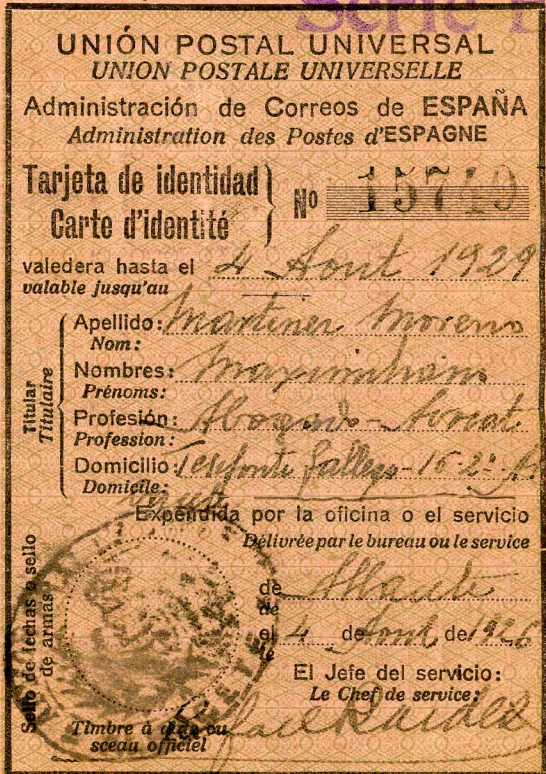 Serie
UNIÓN POSTAL UNIVERSAL
UNION POSTALE UNIVERSELLE
Administración de Correos de ESPAÑA
Administration des Postes d'ESPAGNE
Tarjeta de identidad
Carte d'identité
Nº 15749
valedera hasta el 4 Aout 1929
valable jusqu'au
Titular
Titulaire
Apellido: Martinez Moreno
Nom:
Nombres: Maximiliano
Prénoms:
Profesión: Abogado - Avocat
Profession:
Domicilio: Tesifonte Gallego - 16-2º
Domicile:
Expendida por la oficina o el servicio
Délivrée par le bureau ou le service
de Albacete
de
el 4 de Aout de 1926
le
Sello de fechas o sello
de armas
El Jefe del servicio:
Le Chef de service:
Timbre à date ou
sceau officiel